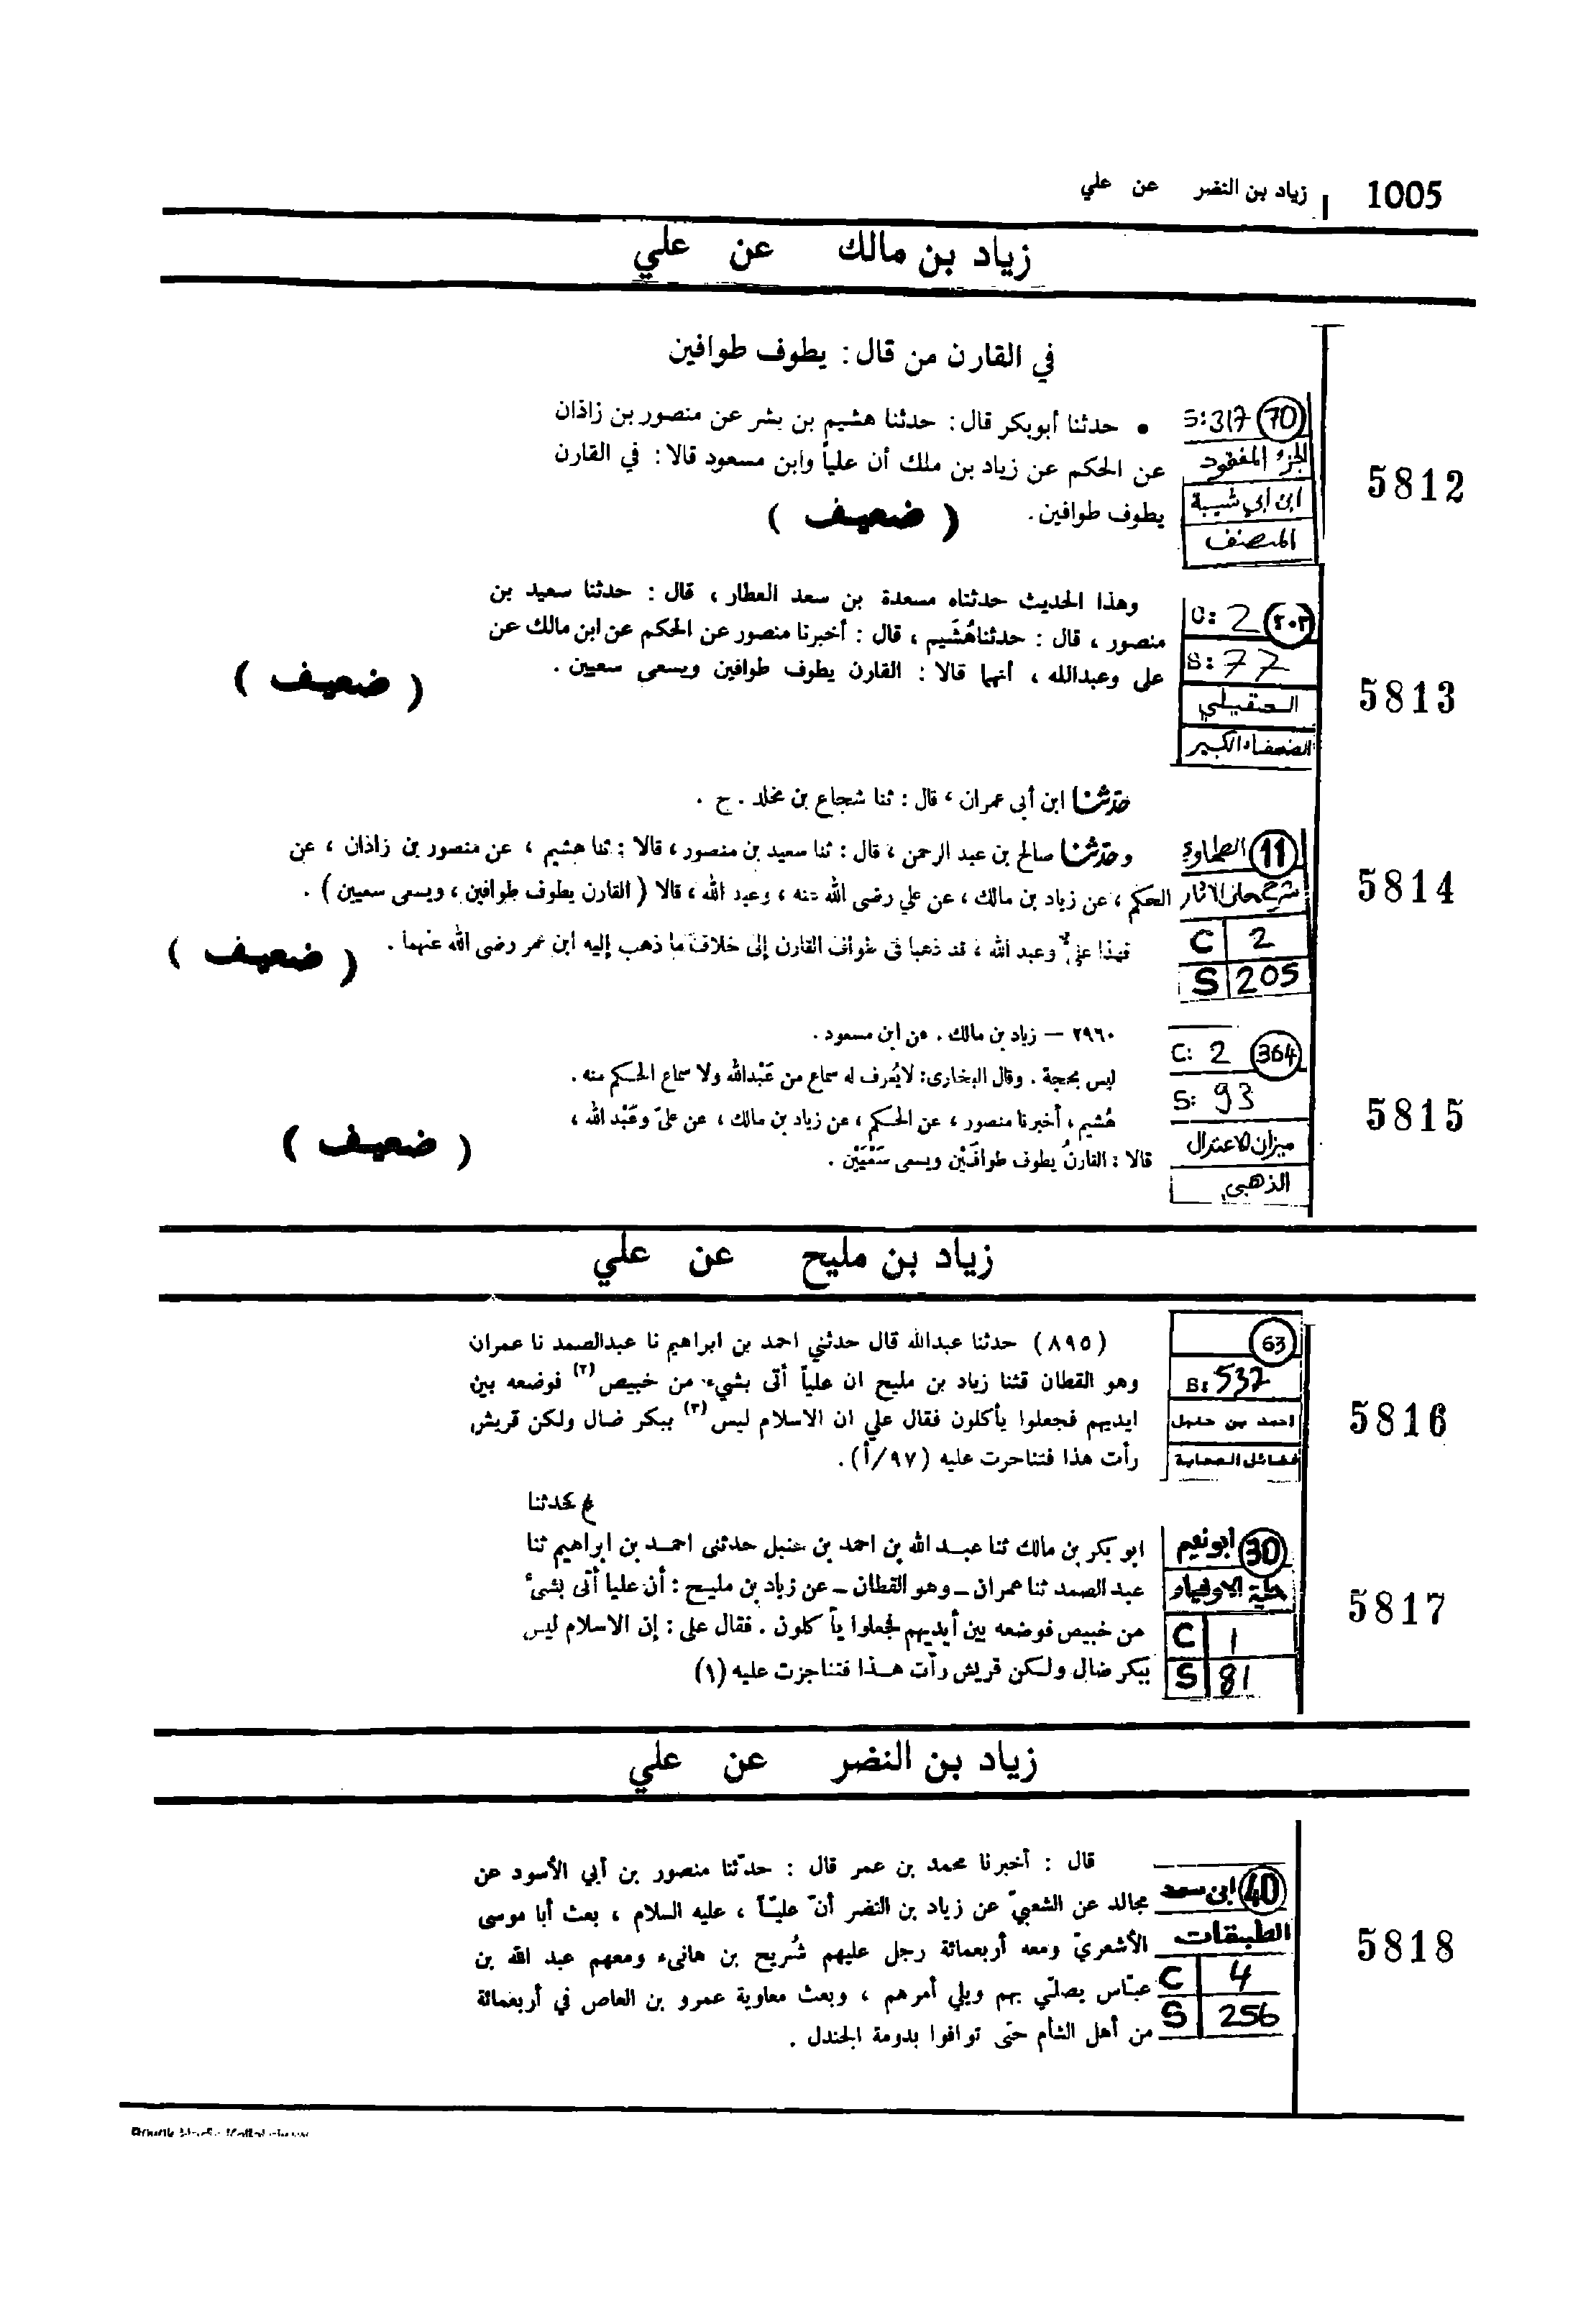 1005 زياد بن النضر عن علي
زياد بن مالك عن علي
في القارن من قال: يطوف طوافين
5812
S: 317 70
الجزء المفقود
ابن ابي شيبة
المصنف
• حدثنا أبوبكر قال: حدثنا هشيم بن بشر عن منصور بن زاذان
عن الحكم عن زياد بن ملك أن علياً وابن مسعود قالا: في القارن
يطوف طوافين. ( ضعيف )
5813
C: 2 ٢٠٢
S: 77
العقيلي
الضعفاء الكبير
وهذا الحديث حدثناه مسعدة بن سعد العطار ، قال : حدثنا سعيد بن
منصور ، قال : حدثنا هُشَيم ، قال : أخبرنا منصور عن الحكم عن ابن مالك عن
على وعبدالله ، أنهما قالا : القارن يطوف طوافين ويسعى سعيين .
( ضعيف )
حدثنا ابن أبى عمران ، قال : ثنا شجاع بن مخلد . ح .
5814
11 الطحاوي
شرح معاني الاثار
C 2
S 205
وحدثنا صالح بن عبد الرحمن ، قال : ثنا سعيد بن منصور ، قالا : ثنا هشيم ، عن منصور بن زاذان ، عن
الحكم ، عن زياد بن مالك ، عن علي رضى الله عنه ، وعبد الله ، قالا ( القارن يطوف طوافين ، ويسعى سعيين ) .
فهذا علي وعبد الله ، قد ذهبا فى طواف القارن إلى خلاف ما ذهب إليه ابن عمر رضى الله عنهما .
( ضعيف )
5815
C: 2 364
S: 93
ميزان الاعتدال
الذهبي
٢٩٦٠ — زياد بن مالك . عن ابن مسعود .
ليس بحجة . وقال البخارى: لايُعرف له سماع من عَبْدالله ولا سماع الحكم منه .
هُشيم ، أخبرنا منصور ، عن الحكم ، عن زياد بن مالك ، عن علىّ وعَبْد الله ،
قالا : القارنُ يطوف طوافَيْن ويسعى سَعْيَيْن .
( ضعيف )
زياد بن مليح عن علي
5816
63
S: 532
احمد بن حنبل
فضائل الصحابة
(٨٩٥) حدثنا عبدالله قال حدثني احمد بن ابراهيم نا عبدالصمد نا عمران
وهو القطان قثنا زياد بن مليح ان علياً أتى بشيء من خبيص (٢) فوضعه بين
ايديهم فجعلوا يأكلون فقال علي ان الاسلام ليس (٣) ببكر ضال ولكن قريش
رأت هذا فتناحرت عليه (٩٧/أ).
حدثنا
5817
30 ابو نعيم
حلية الاولياء
C 1
S 81
ابو بكر بن مالك ثنا عبد الله بن احمد بن حنبل حدثنى احمد بن ابراهيم ثنا
عبد الصمد ثنا عمران - وهو القطان - عن زياد بن مليح : أن عليا أتى بشئ
من خبيص فوضعه بين أيديهم فجعلوا يأكلون . فقال على : إن الاسلام ليس
ببكر ضال ولكن قريش رأت هذا فتناجزت عليه (١)
زياد بن النضر عن علي
5818
40 ابن سعد
الطبقات
C 4
S 256
قال : أخبرنا محمد بن عمر قال : حدّثنا منصور بن أبي الأسود عن
مجالد عن الشعبيّ عن زياد بن النضر أنّ عليّاً ، عليه السلام ، بعث أبا موسى
الأشعريّ ومعه أربعمائة رجل عليهم شُريح بن هانىء ومعهم عبد الله بن
عبّاس يصلّي بهم ويلي أمرهم ، وبعث معاوية عمرو بن العاص في أربعمائة
من أهل الشأم حتى توافوا بدومة الجندل .